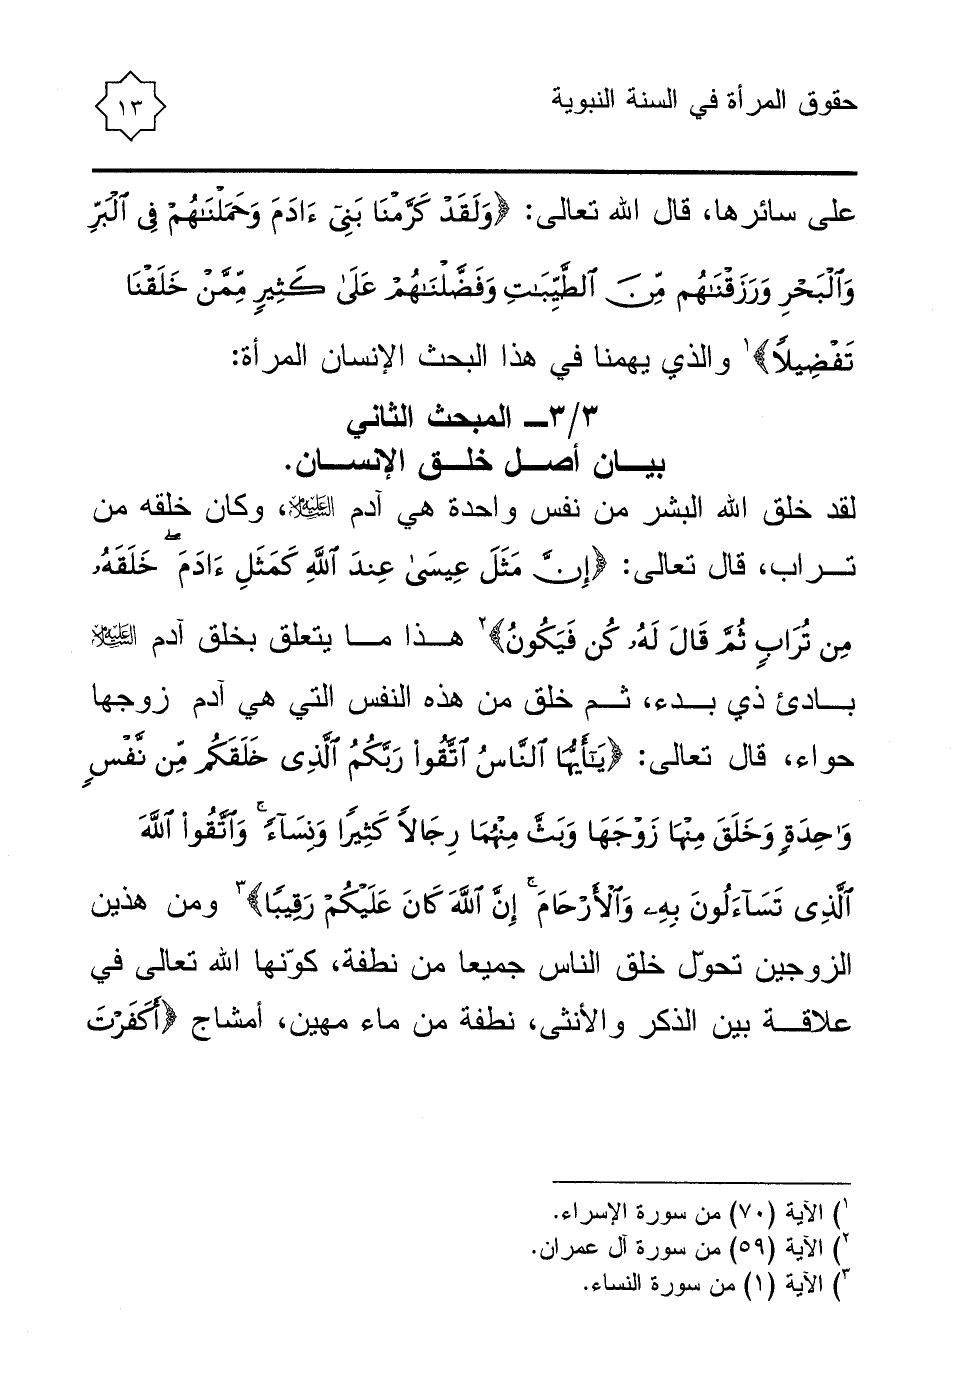 حقوق المرأة في السنة النبوية
١٣
على سائرها، قال الله تعالى: ﴿وَلَقَدْ كَرَّمْنَا بَنِىٓ ءَادَمَ وَحَمَلْنَـٰهُمْ فِى ٱلْبَرِّ
وَٱلْبَحْرِ وَرَزَقْنَـٰهُم مِّنَ ٱلطَّيِّبَـٰتِ وَفَضَّلْنَـٰهُمْ عَلَىٰ كَثِيرٍ مِّمَّنْ خَلَقْنَا
تَفْضِيلًا﴾١ والذي يهمنا في هذا البحث الإنسان المرأة:
٣/٣ــ المبحث الثاني
بيــان أصـل خلـق الإنسـان.
لقد خلق الله البشر من نفس واحدة هي آدم عليه السلام، وكان خلقه من
تـراب، قال تعالى: ﴿إِنَّ مَثَلَ عِيسَىٰ عِندَ ٱللَّهِ كَمَثَلِ ءَادَمَ ۖ خَلَقَهُۥ
مِن تُرَابٍ ثُمَّ قَالَ لَهُۥ كُن فَيَكُونُ﴾٢ هـذا مـا يتعلق بخلق آدم عليه السلام
بـادئ ذي بـدء، ثـم خلق من هذه النفس التي هي آدم زوجها
حواء، قال تعالى: ﴿يَـٰٓأَيُّهَا ٱلنَّاسُ ٱتَّقُوا۟ رَبَّكُمُ ٱلَّذِى خَلَقَكُم مِّن نَّفْسٍ
وَٰحِدَةٍ وَخَلَقَ مِنْهَا زَوْجَهَا وَبَثَّ مِنْهُمَا رِجَالًا كَثِيرًا وَنِسَآءً ۚ وَٱتَّقُوا۟ ٱللَّهَ
ٱلَّذِى تَسَآءَلُونَ بِهِۦ وَٱلْأَرْحَامَ ۚ إِنَّ ٱللَّهَ كَانَ عَلَيْكُمْ رَقِيبًا﴾٣ ومن هذين
الزوجين تحوّل خلق الناس جميعا من نطفة، كوّنها الله تعالى في
علاقـة بين الذكر والأنثى، نطفة من ماء مهين، أمشاج ﴿أَكَفَرْتَ
١) الآية (٧٠) من سورة الإسراء.
٢) الآية (٥٩) من سورة آل عمران.
٣) الآية (١) من سورة النساء.